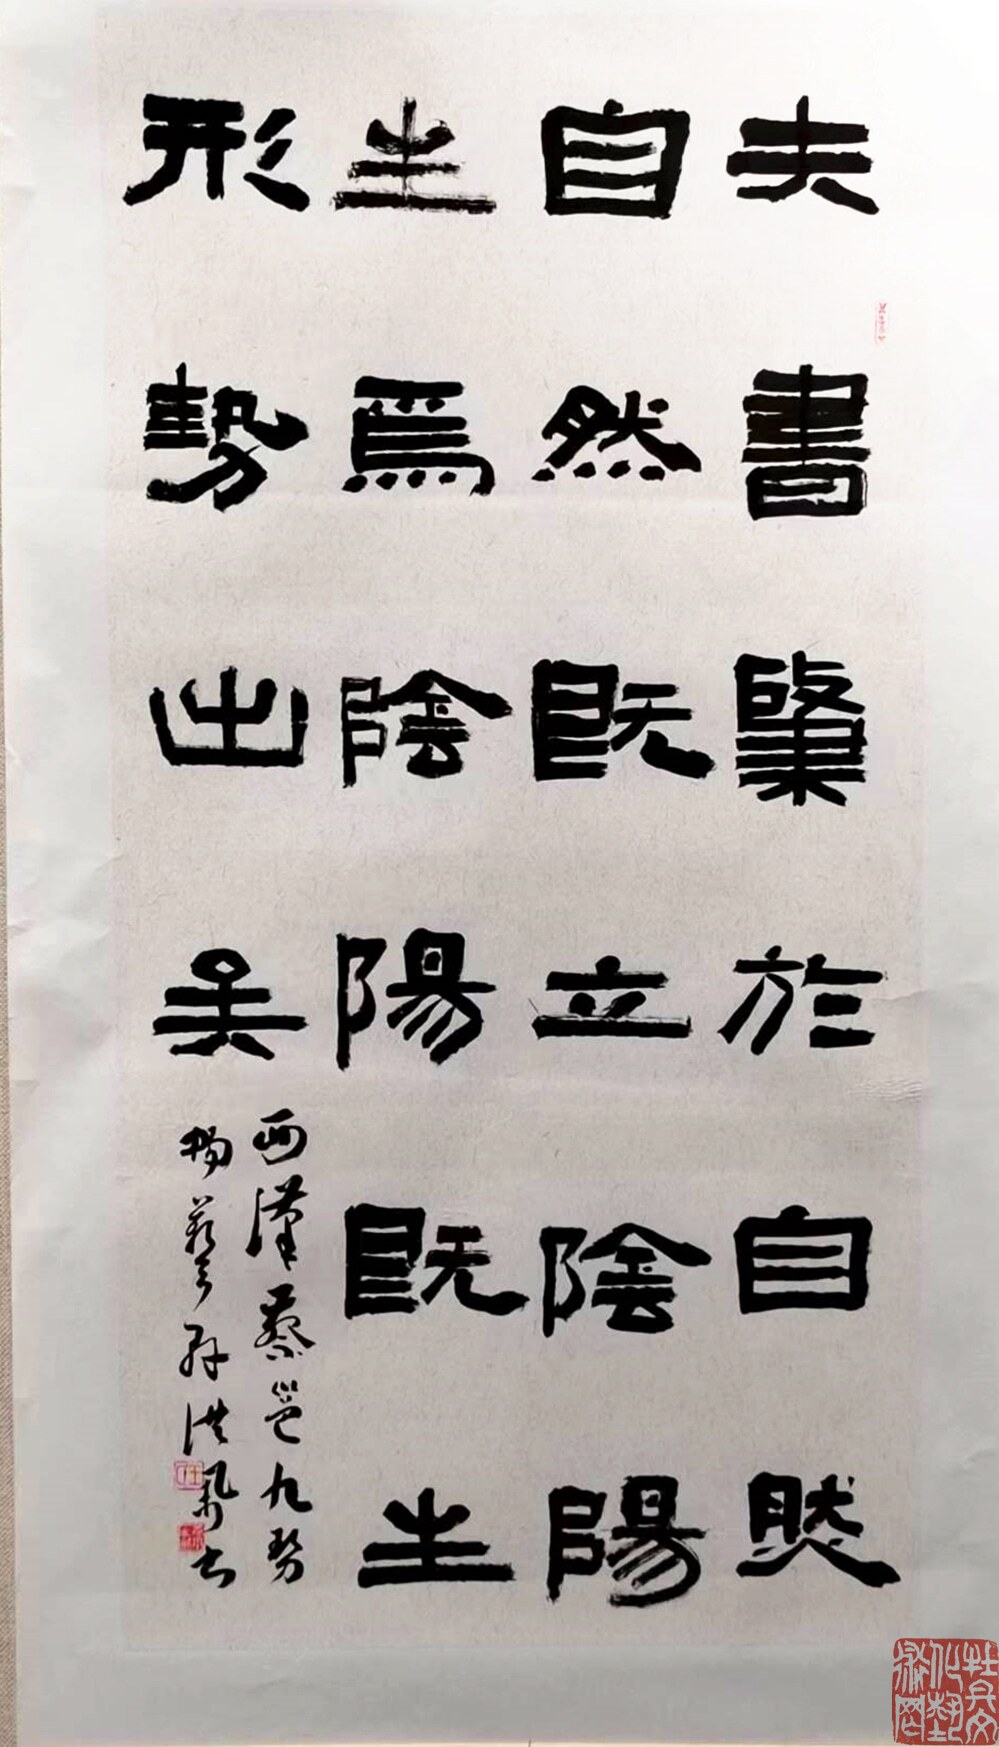 夫書肇於自然
自然既立陰陽
生焉陰陽既生
形勢出矣
西漢蔡邕九势
孫洪
书